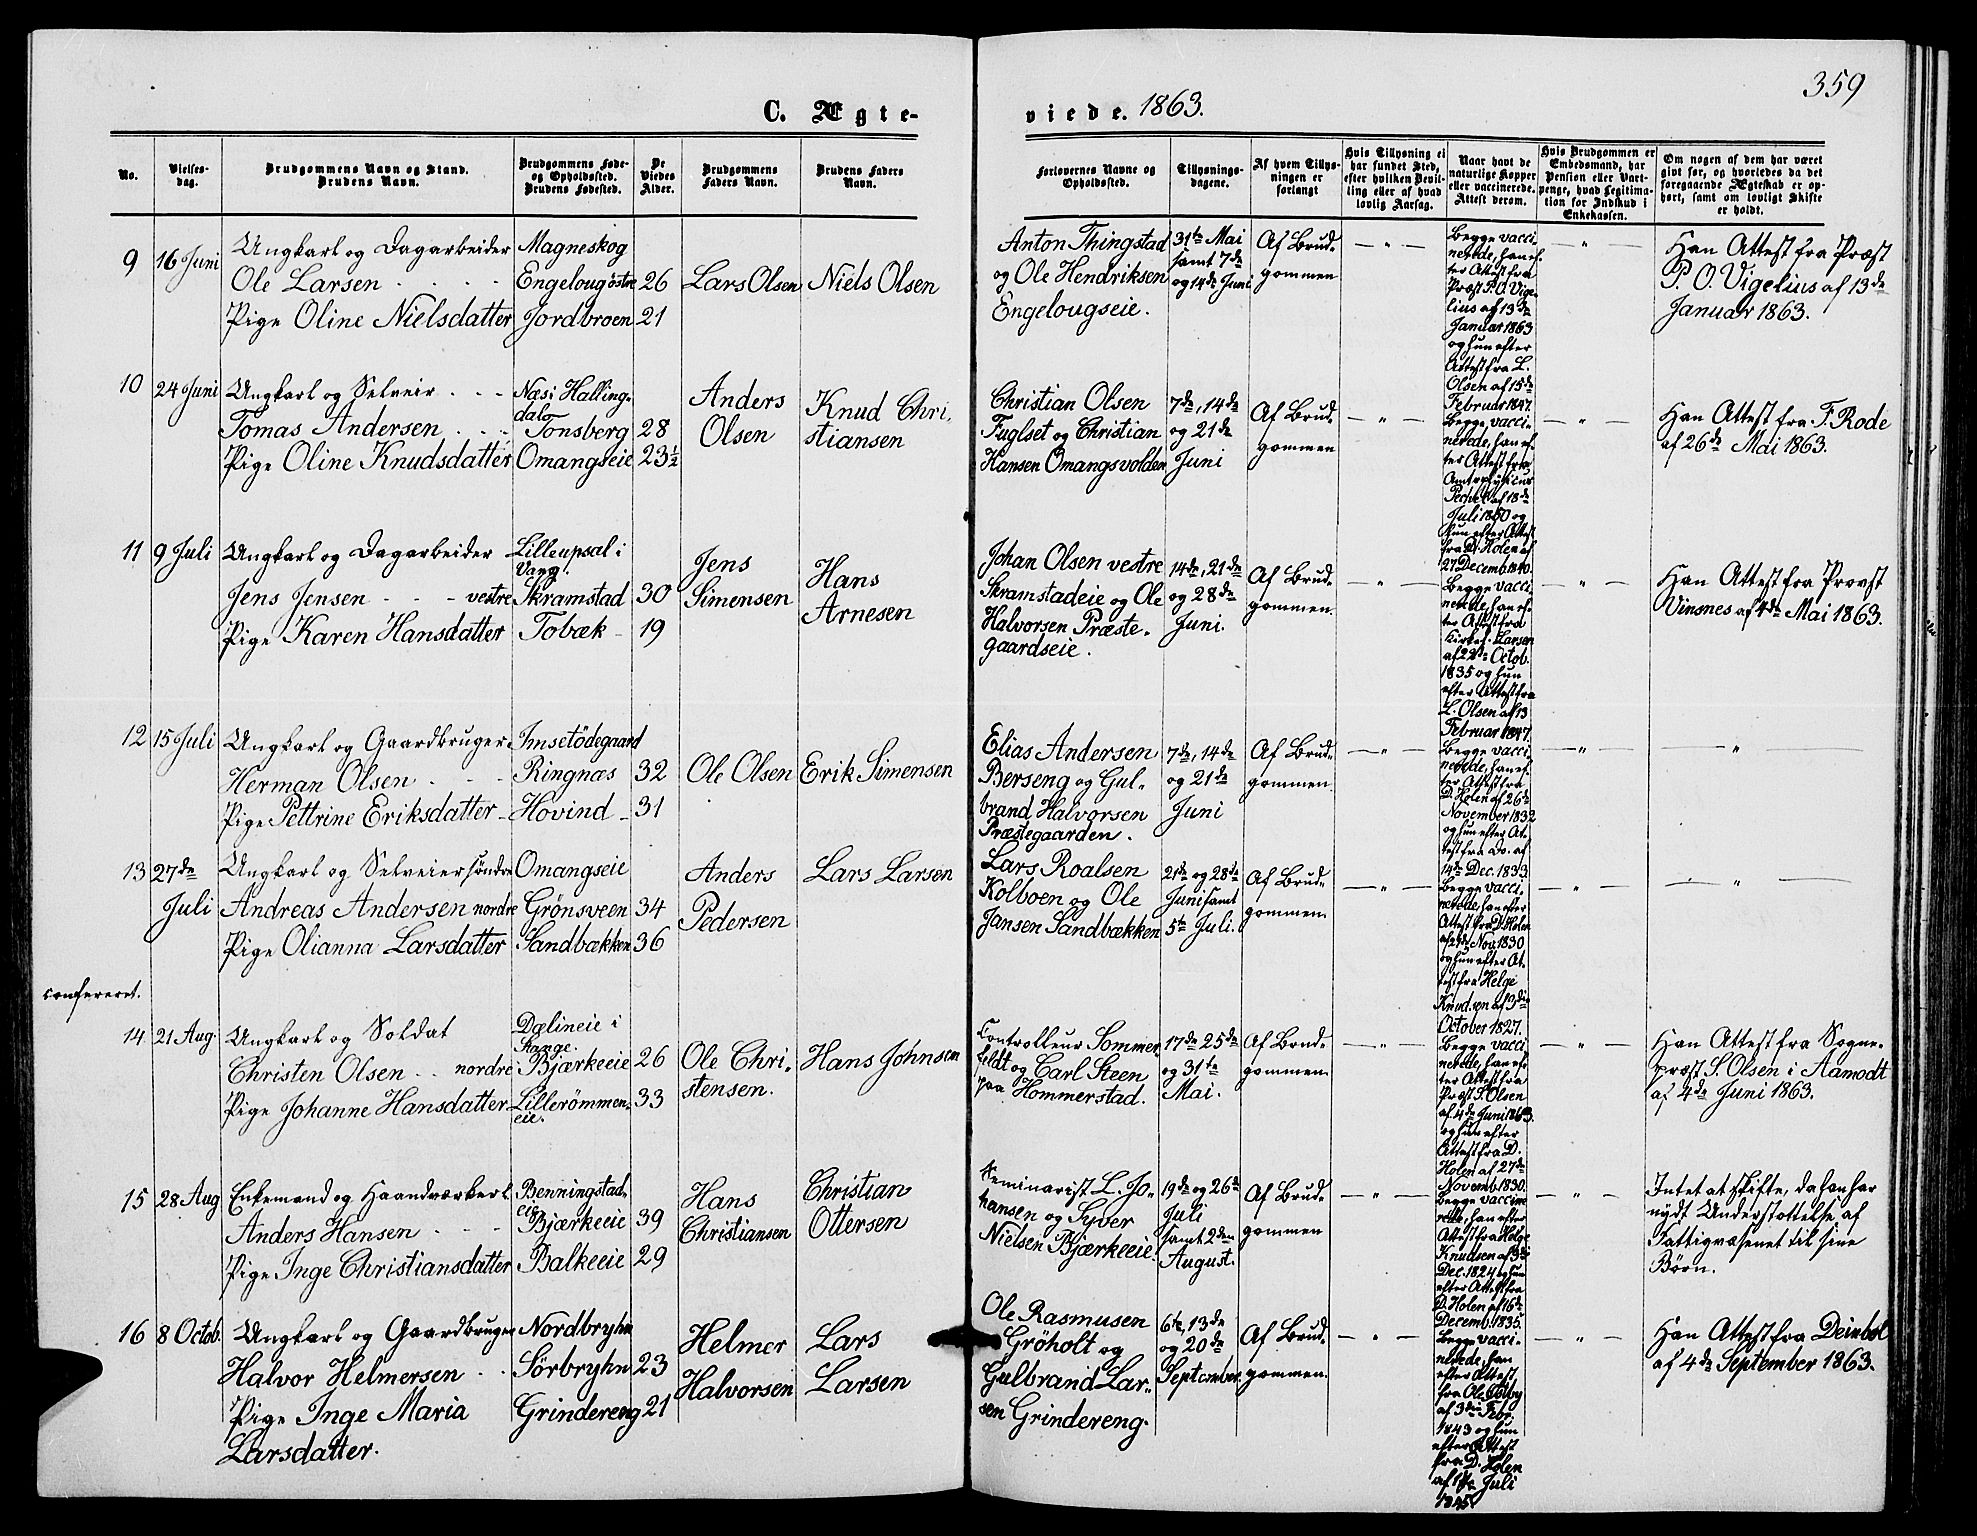 359
C. Ægte-
viede. 1863.
No.
Vielses-
dag.
Brudgommens Navn og Stand.
Brudens Navn.
Brudgommens Føde-
og Opholdssted.
Brudens Fødested.
De
Viedes
Alder.
Brudgommens
Faders Navn.
Brudens Faders
Navn.
Forlovernes Navne og
Opholdssted.
Tillysnings-
dagene.
Af hvem Tillys-
ningen er
forlangt
Hvis Tillysning ei
har fundet Sted,
efter hvilken Bevil-
ling eller af hvad
lovlig Aarsag.
Naar havt de
naturlige Kopper
eller vaccinerede.
Attest derom.
Hvis Brudgommen er
Embedsmand, har
Pension eller Vart-
penge, hvad Legitima-
tion for Indskud i
Enkekassen.
Om nogen af dem har været
givt før, og hvorledes da det
foregaaende Ægteskab er op-
hørt, samt om lovligt Skifte
er holdt.
9
16 Juni
Ungkarl og Dagarbeider
Ole Larsen
Pige Oline Nielsdatter
Magneskog
Engeloug østre
Jordbroen
26
21
Lars Olsen
Niels Olsen
Anton Thingstad
og Ole Hendriksen
Engelougseie.
31te Mai
samt 7de
og 14de Juni
Af Brud-
gommen
Begge vacci-
nerede, han ef-
ter Attest fra
Præst P. O. Vige-
lius af 13de
Januar 1863
og hun efter
Attest fra L.
Olsen af 15de
Februar 1847.
Han Attest fra Præst
P. O. Vigelius af 13de
Januar 1863.
10
24 Juni
Ungkarl og Selveier
Tomas Andersen
Pige Oline Knudsdatter
Næs i Halling-
dal
Tonsberg
Omangseie
28
23½
Anders
Olsen
Knud Chri-
stiansen
Christian Olsen
Fuglset og Christian
Hansen Omangsvolden
7de, 14de
og 21de
Juni
Af Brud-
gommen
Begge vacci-
nerede, han ef-
ter Attest fra
af 18de
Juli 1850 og
hun efter Attest
fra D. Holen af
27 Decemb. 1840.
Han Attest fra F. Rode
af 26de Mai 1863.
11
9 Juli
Ungkarl og Dagarbeider
Jens Jensen - - - vestre
Pige Karen Hansdatter
Lilleupsal i
Vang.
Skramstad
Tobæk
30
19
Jens
Simensen
Hans
Arnesen
Johan Olsen vestre
Skramstadeie og Ole
Halvorsen Præste-
gaardseie.
14de, 21de
og 28de
Juni.
Af Brud-
gommen.
Begge vacci-
nerede, han ef-
ter Attest fra
Kirkes. Larsen
af 22de Octob.
1835 og hun
efter Attest fra
L. Olsen af 13
Februar 1847.
Han Attest fra Provst
Vinsnes af 4de Mai 1863.
12
15 Juli
Ungkarl og Gaardbruger
Herman Olsen
Pige Pettrine Eriksdatter
Imsetödegaard
Ringnæs
Hovind
32
31
Ole Olsen
Erik Simensen
Elias Andersen
Berseng og Gul-
brand Halvorsen
Præstegaarden.
7de, 14de
og 21de
Juni
Af Brud-
gommen
Begge vacci-
nerede, han ef-
ter Attest fra
D. Holen af 26de
November 1832
og hun efter At-
test fra Do. af
14de Dec. 1833
13
27de
Juli
Ungkarl og Selveier søndre
Andreas Andersen nordre
Pige Olianna Larsdatter
Omangseie
Grönsveen
Sandbækken
34
36
Anders
Pedersen
Lars Larsen
Lars Roalsen
Kolboen og Ole
Jansen Sandbækken
21de og 28de
Juni samt
5te Juli.
Af Brud-
gommen.
Begge vacci-
nerede, han efter
Attest fra D. Holen
Nov. 1830
og hun efter At-
test fra Helge
Knudsen af 3die
October 1827.
confereret.
14
21 Aug.
Ungkarl og Soldat
Christen Olsen - - nordre
Pige Johanne Hansdatter
Dælineie i
Stange.
Bjærkeeie
Lillerömmen-
eie.
26
33
Ole Chri-
stensen.
Hans Johnsen
Controlleur Sommer-
feldt og Carl Steen
paa Hommerstad.
17de 25de
og 31te
Mai.
Af Brud-
gommen.
Begge vacci-
nerede, han ef-
ter Attest fra
Præst S. Olsen
af 4de Juni 1863.
og hun efter
Attest fra D.
Holen af 27de
Novemb. 1830.
Han Attest fra Sogne-
præst S. Olsen i Aamodt
af 4de Juni 1863.
15
28 Aug
Enkemand og Haandværkerk
Anders Hansen
Pige Inge Christiansdatter
Benningstad-
eie
Bjærkeeie
Balkeeie
39
29
Hans
Christiansen
Christian
Ottersen
Seminarist L. Jo-
hansen og Syver
Nielsen Bjærkeeie.
19de og 26de
Juli
samt 2den
August.
Af Brud-
gommen
Begge vaccine-
rede, han efter
Attest fra Helge
Knudsen af 3die
Dec. 1824 og hun
efter Attest fra
D. Holen af 16de
Decemb. 1835.
Intet at skifte, da han har
nydt Understøttelse af
Fattigvæsenet til sine
Børn.
16
8 Octob.
Ungkarl og Gaardbruger
Halvor Helmersen
Pige Inge Maria
Larsdatter.
Nordbryhn
Sörbryhn
Grindereng
23
21
Helmer
Halvorsen
Lars
Larsen
Ole Rasmusen
Gröholt og
Gulbrand Lar-
sen Grindereng.
6te, 13de
og 20de
September.
Af Brud-
gommen.
Begge vacci-
nerede, han
efter Attest
fra Ole
af 3die Febr.
1843 og hun
efter Attest
fra D. Holen
af Juli
1845.
Han Attest fra Deinbol
af 4de September 1863.